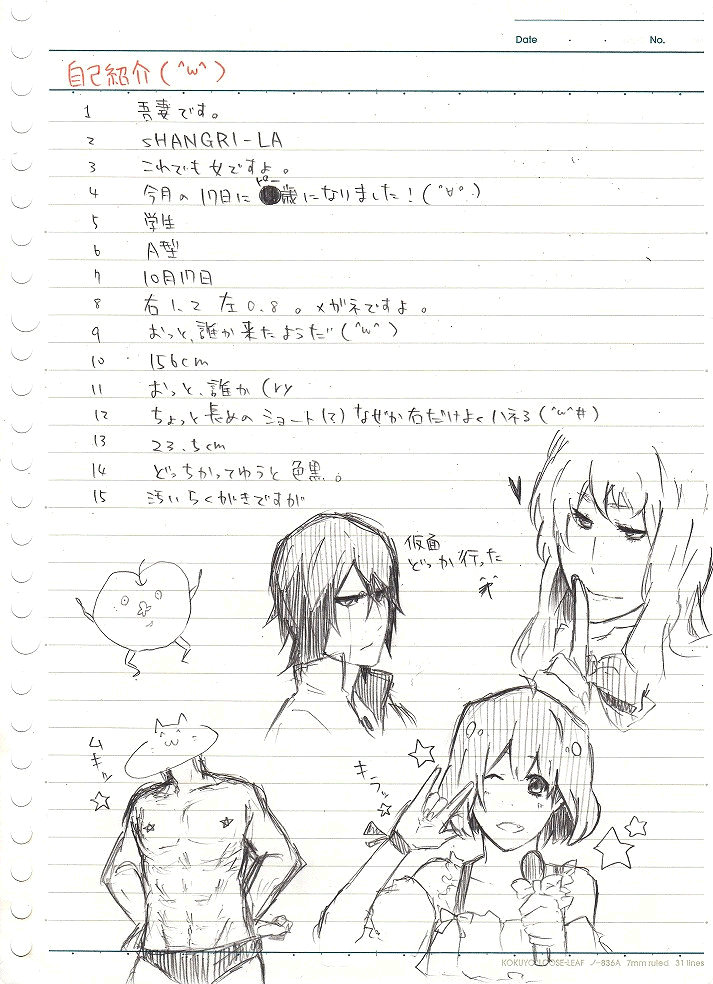 Date ・ ・ No.
自己紹介(^w^)
1 吾妻です。
2 sHANGRI-LA
3 これでも女ですよ。
4 今月の17日に●歳になりました！(°∀°)
ピー
5 学生
6 A型
7 10月17日
8 右1.2 左0.8。メガネですよ。
9 おっと、誰か来たようだ(^w^)
10 156cm
11 おっと、誰か(ry
12 ちょっと長めのショート(?)なぜか右だけよくハネる(^w^#)
13 23.5cm
14 どっちかってゆうと色黒。
15 汚いらくがきですが
仮面
どっか行った
ムキッ
キラッ
KOKUYO LOOSE-LEAF ノ-836A 7mm ruled 31 lines